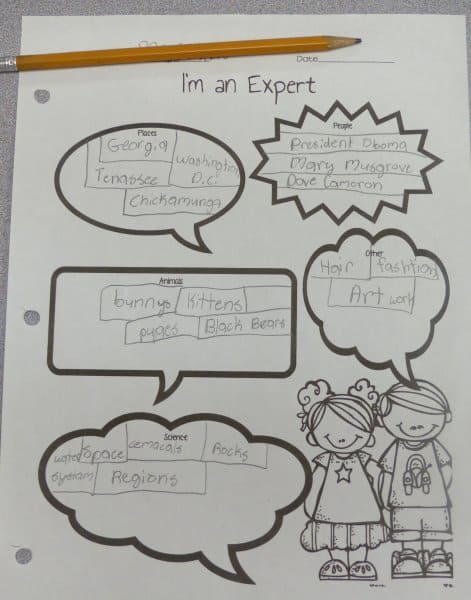 Date
I'm an Expert
Places
Georgia
Washington
D.C.
Tenassee
Chickamunga
People
President Obama
Mary Musgrove
Dove Cameron
Animals
bunnys kittens
puges Black Bears
Other
Hair fashion
Art work
Science
water Space cemacals Rocks
System Regions